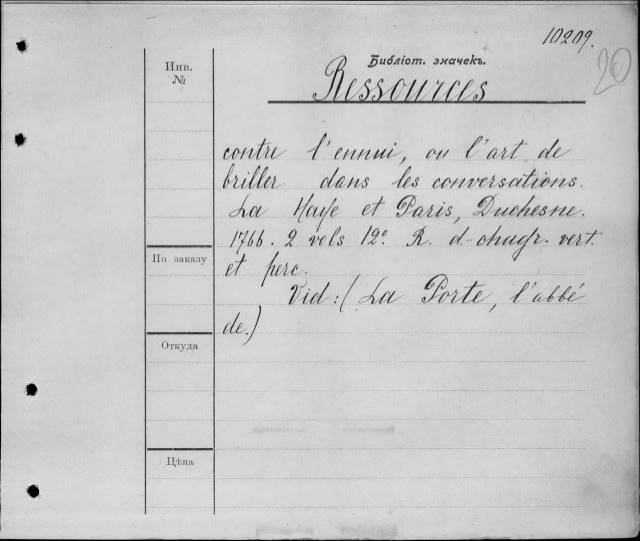 10209.
20
Библіот. значекъ.
Инв.
№
Ressources
contre l'ennui, ou l'art de
briller dans les conversations.
La Haye et Paris, Duchesne.
1766. 2 vols 12º. R. d-chagr. vert.
По заказу
et perc.
Vid: ( La Porte, l'abbé
de.)
Откуда
Цѣна